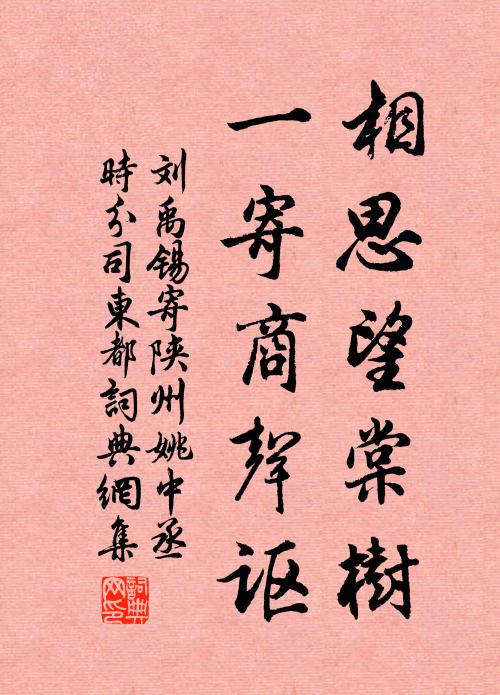 相思望棠樹
一寄商聲謳
刘禹锡寄陕州姚中丞
時分司東都詞典網集
詞典网印